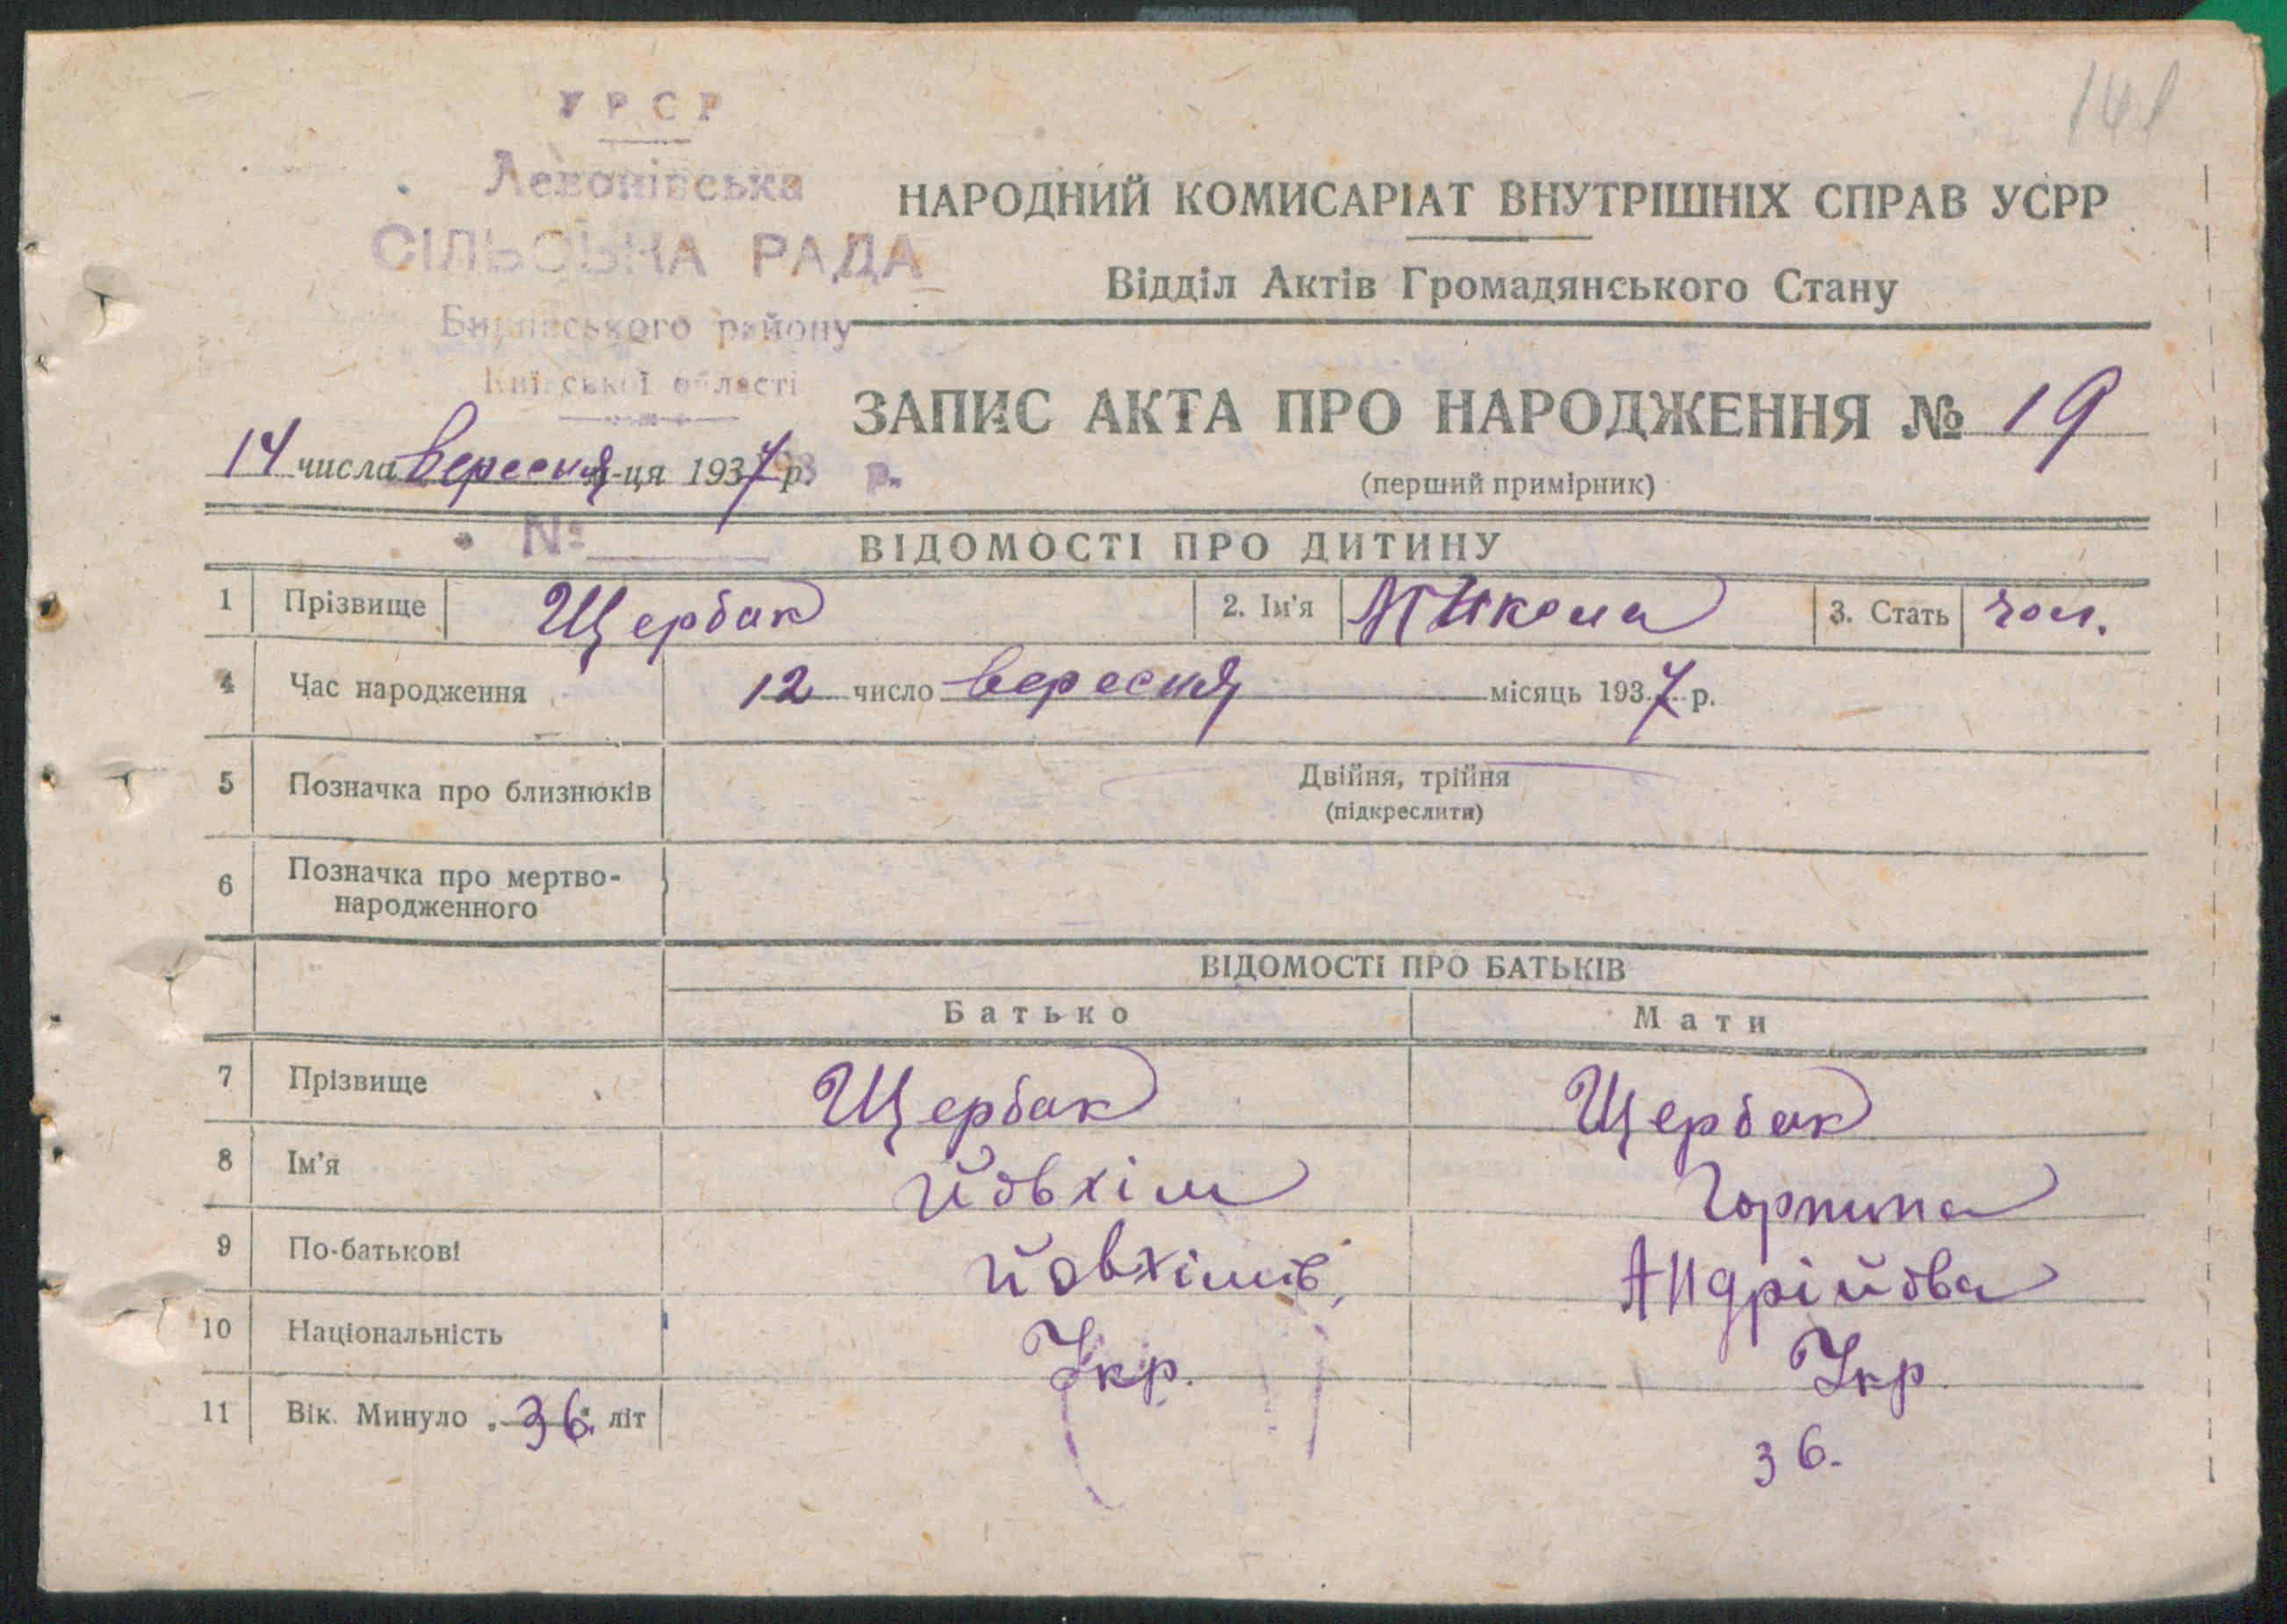 141
УРСР
Левонівська
СІЛЬСЬКА РАДА
району
Київської області
НАРОДНИЙ КОМИСАРІАТ ВНУТРІШНІХ СПРАВ УСРР
Відділ Актів Громадянського Стану
ЗАПИС АКТА ПРО НАРОДЖЕННЯ № 19
14 числа вересня м-ця 1937 р. 193 р.
(перший примірник)
№
ВІДОМОСТІ ПРО ДИТИНУ
1 Прізвище Щербак 2. Ім'я Микола 3. Стать чол.
4 Час народження 12 число вересня місяць 1937 р.
5 Позначка про близнюків Двійня, трійня
(підкреслити)
6 Позначка про мертво-
народженного
ВІДОМОСТІ ПРО БАТЬКІВ
Батько Мати
7 Прізвище Щербак Щербак
8 Ім'я Йовхім Горпина
9 По-батькові Йовхімів, Андрійова
10 Національність Укр. Укр.
11 Вік. Минуло „36" літ 36.